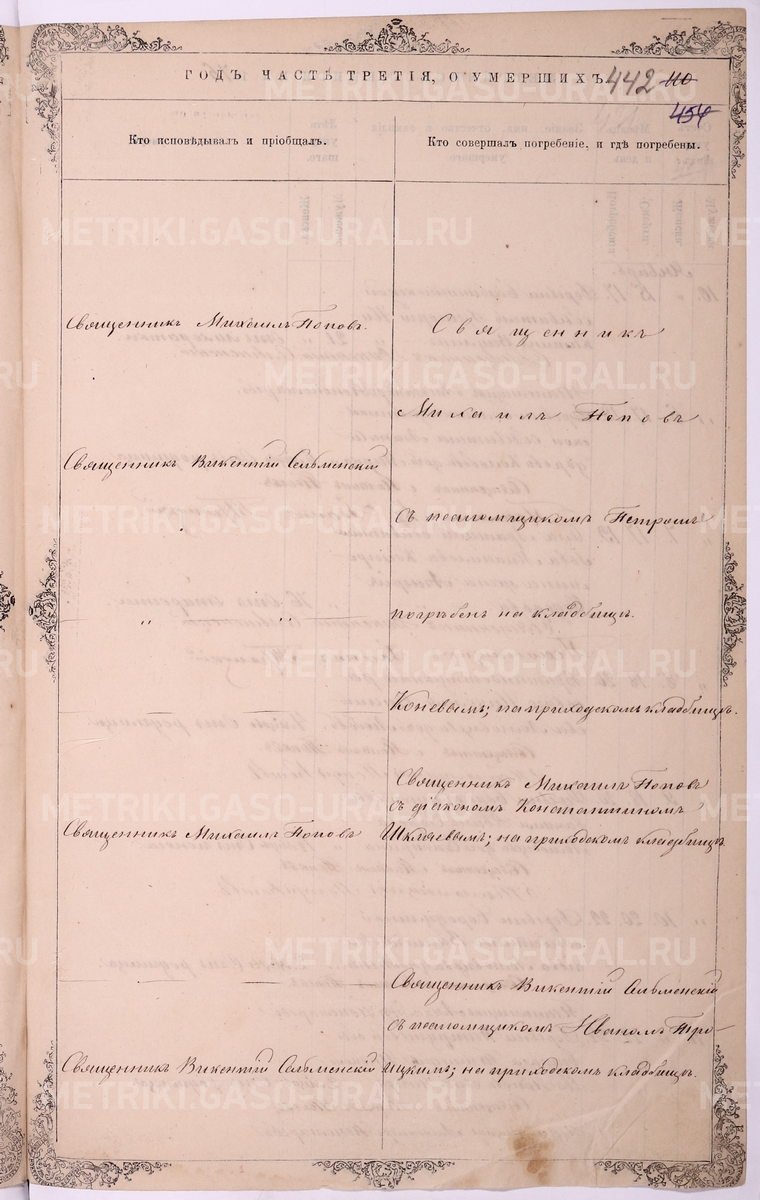 ГОДЪ ЧАСТЬ ТРЕТІЯ, О УМЕРШИХЪ 442 110
454
Кто исповѣдывалъ и пріобщалъ.
Кто совершалъ погребеніе, и гдѣ погребены.
Священникъ Михаилъ Поповъ.
Священникъ
Михаилъ Поповъ
Священникъ Викентій Сельменскій
съ псаломщикомъ Петромъ
„ „
погребенъ на кладбищѣ.
Коневымъ; на приходскомъ кладбищѣ.
Священникъ Михаилъ Поповъ
съ діакономъ Константиномъ
Священникъ Михаилъ Поповъ
на приходскомъ кладбищѣ
Священникъ Викентій Сельменскій
съ псаломщикомъ Иваномъ Тро-
Священникъ Викентій Сельменскій
ицкимъ; на приходскомъ кладбищѣ.
METRIKI.GASO-URAL.RU